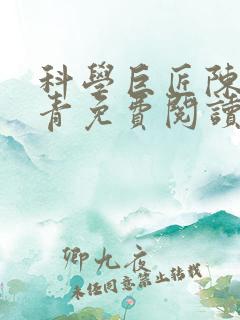 科學巨匠陳
青免費閱讀
卿九夜
未经同意禁止转载